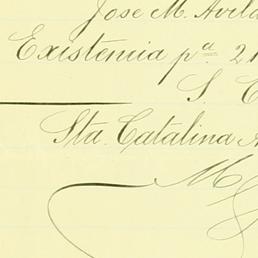 Jose M. Avila
Existencia pª 21
S. C
Sta. Catalina A
M